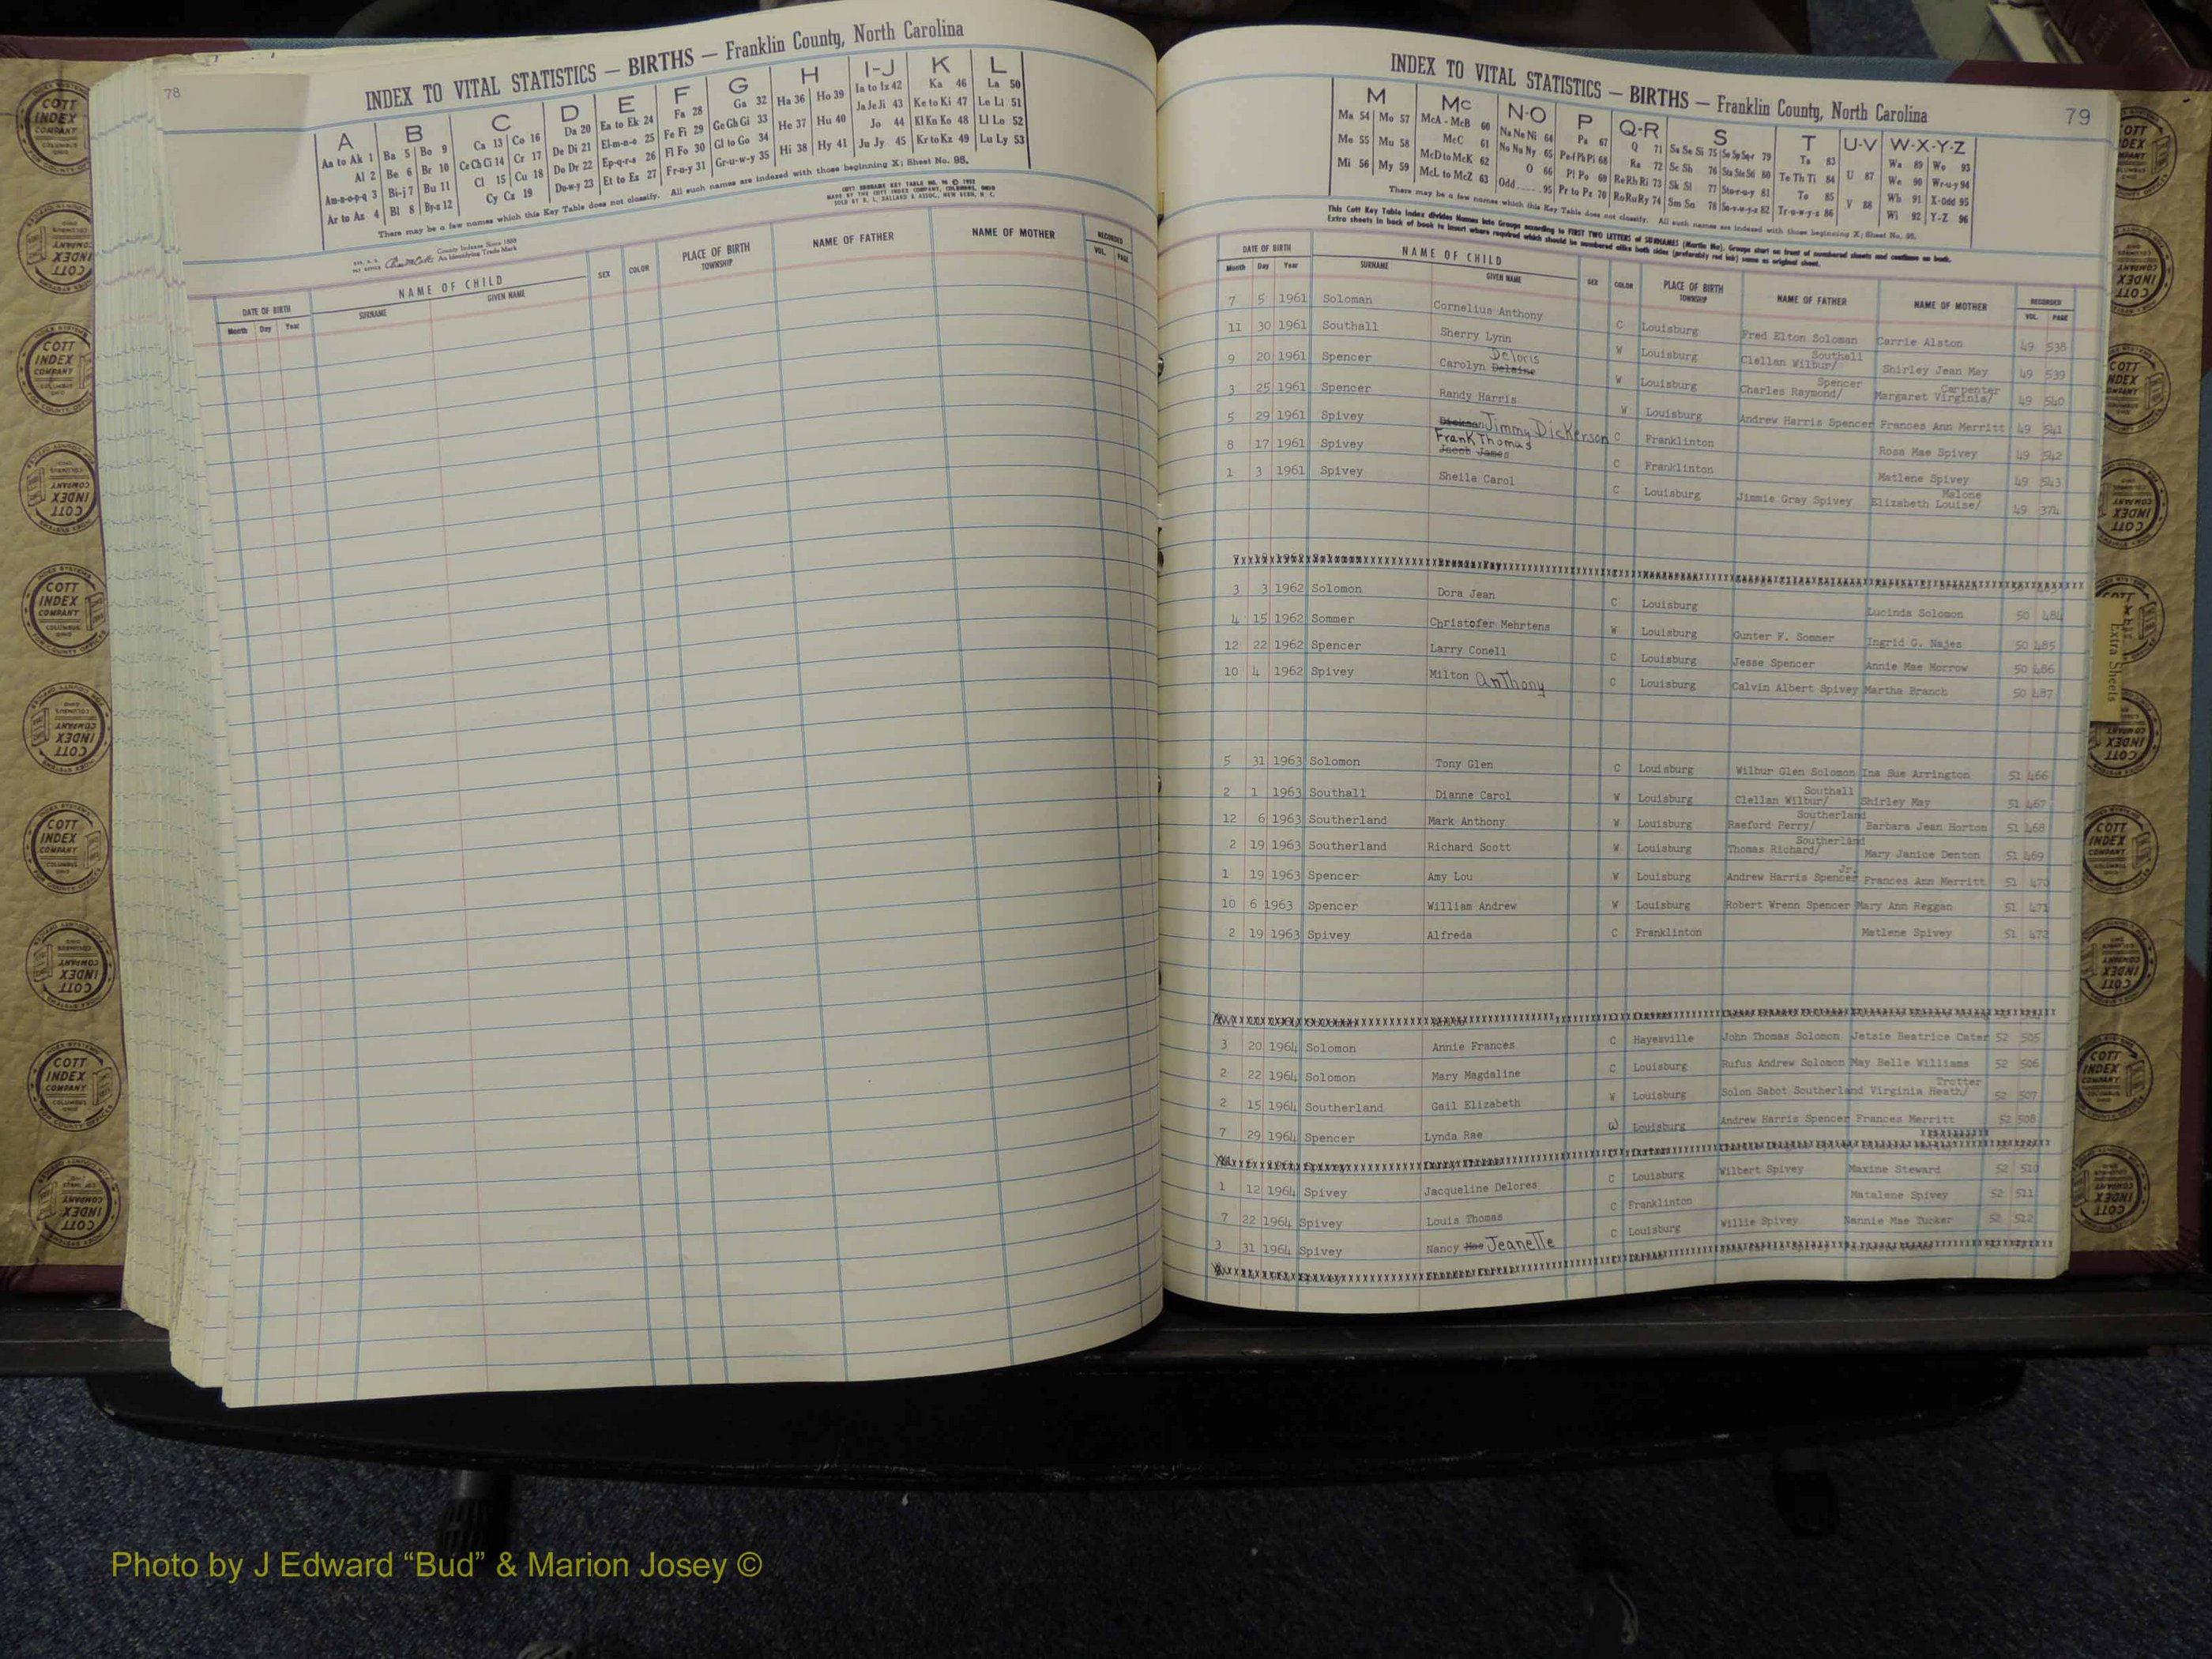 78
INDEX TO VITAL STATISTICS — BIRTHS — Franklin County, North Carolina
A B C D E F G H I-J K L
Aa to Ak 1 Ba 5 Bo 9 Ca 13 Co 16 Da 20 Ea to Ek 24 Fa 28 Ga 32 Ha 36 Ho 39 Ia to Iz 42 Ka 46 La 50
Al 2 Be 6 Br 10 Ce Ch Ci 14 Cr 17 De Di 21 El-m-n-o 25 Fe Fi 29 Ge Gh Gi 33 He 37 Hu 40 Ja Je Ji 43 Ke to Ki 47 Le Li 51
Am-n-o-p-q 3 Bi-j 7 Bu 11 Cl 15 Cu 18 Do Dr 22 Ep-q-r-s 26 Fl Fo 30 Gl to Go 34 Hi 38 Hy 41 Jo 44 Kl Kn Ko 48 Ll Lo 52
Ar to Az 4 Bl 8 By-z 12 Cy Cz 19 Du-w-y 23 Et to Ez 27 Fr-u-y 31 Gr-u-w-y 35 Ju Jy 45 Kr to Kz 49 Lu Ly 53
There may be a few names which this Key Table does not classify. All such names are indexed with those beginning X; Sheet No. 95.
County Indexes Since 1888
An Identifying Trade Mark
DATE OF BIRTH NAME OF CHILD SEX COLOR PLACE OF BIRTH TOWNSHIP NAME OF FATHER NAME OF MOTHER RECORDED
Month Day Year SURNAME GIVEN NAME VOL. PAGE
INDEX TO VITAL STATISTICS — BIRTHS — Franklin County, North Carolina
79
M Mc N-O P Q-R S T U-V W-X-Y-Z
Ma 54 Mo 57 McA - McB 60 Na Ne Ni 64 Pa 67 Q 71 Sa Sc Si 75 So Sp Sq-r 79 Ta 83 U 87 Wa 89 Wo 93
Me 55 Mu 58 McC 61 No Nu Ny 65 Pe-f Ph Pi 68 Ra 72 Se Sh 76 Sta Ste St 80 Te Th Ti 84 V 88 We 90 Wr-u-y 94
Mi 56 My 59 McD to McK 62 O 66 Pl Po 69 Re Rh Ri 73 Sk Sl 77 Sto-r-u-y 81 To 85 Wh 91 X-Odd 95
McL to McZ 63 Odd 95 Pr to Pz 70 Ro Ru Ry 74 Sm Sn 78 Su-v-w-y-z 82 Tr-u-w-y-z 86 Wi 92 Y-Z 96
There may be a few names which this Key Table does not classify. All such names are indexed with those beginning X; Sheet No. 95.
This Cott Key Table Index divides Names into Groups according to FIRST TWO LETTERS of SURNAMES (Martin Ma). Groups start on front of numbered sheets and continue on back.
Extra sheets in back of book to insert where required which should be numbered alike both sides (preferably red ink) same as original sheet.
DATE OF BIRTH NAME OF CHILD SEX COLOR PLACE OF BIRTH TOWNSHIP NAME OF FATHER NAME OF MOTHER RECORDED
Month Day Year SURNAME GIVEN NAME VOL. PAGE
7 5 1961 Soloman Cornelius Anthony C Louisburg Fred Elton Soloman Carrie Alston 49 538
11 30 1961 Southall Sherry Lynn W Louisburg Clellan Wilbur/ Southall Shirley Jean May 49 539
9 20 1961 Spencer Carolyn Delaine Deloris W Louisburg Charles Raymond/ Spencer Margaret Virginia/ Carpenter 49 540
3 25 1961 Spencer Randy Harris W Louisburg Andrew Harris Spencer Frances Ann Merritt 49 541
5 29 1961 Spivey Dickson Jimmy Dickerson C Franklinton Rosa Mae Spivey 49 542
8 17 1961 Spivey Frank Thomas Jacob James C Franklinton Matlene Spivey 49 543
1 3 1961 Spivey Sheila Carol C Louisburg Jimmie Gray Spivey Elizabeth Louise/ Malone 49 374
3 3 1962 Solomon Dora Jean C Louisburg Lucinda Solomon 50 484
4 15 1962 Sommer Christofer Mehrtens W Louisburg Gunter F. Sommer Ingrid G. Najes 50 485
12 22 1962 Spencer Larry Conell C Louisburg Jesse Spencer Annie Mae Morrow 50 486
10 4 1962 Spivey Milton Anthony C Louisburg Calvin Albert Spivey Martha Branch 50 487
5 31 1963 Solomon Tony Glen C Louisburg Wilbur Glen Solomon Ina Sue Arrington 51 466
2 1 1963 Southall Dianne Carol W Louisburg Clellan Wilbur/ Southall Shirley May 51 467
12 6 1963 Southerland Mark Anthony W Louisburg Raeford Perry/ Southerland Barbara Jean Horton 51 468
2 19 1963 Southerland Richard Scott W Louisburg Thomas Richard/ Southerland Mary Janice Denton 51 469
1 19 1963 Spencer Amy Lou W Louisburg Andrew Harris Spencer Jr. Frances Ann Merritt 51 470
10 6 1963 Spencer William Andrew W Louisburg Robert Wrenn Spencer Mary Ann Reggan 51 471
2 19 1963 Spivey Alfreda C Franklinton Matlene Spivey 51 472
3 20 1964 Solomon Annie Frances C Hayesville John Thomas Solomon Jetsie Beatrice Cater 52 505
2 22 1964 Solomon Mary Magdaline C Louisburg Rufus Andrew Solomon May Belle Williams 52 506
2 15 1964 Southerland Gail Elizabeth W Louisburg Solon Sabot Southerland Virginia Heath/ Trotter 52 507
7 29 1964 Spencer Lynda Rae W Louisburg Andrew Harris Spencer Frances Merritt 52 508
1 12 1964 Spivey Jacqueline Delores C Louisburg Wilbert Spivey Maxine Steward 52 510
7 22 1964 Spivey Louis Thomas C Franklinton Matalene Spivey 52 511
3 31 1964 Spivey Nancy Mae Jeanette C Louisburg Willie Spivey Nannie Mae Tucker 52 512
Extra Sheets
COTT INDEX COMPANY
Photo by J Edward “Bud” & Marion Josey ©